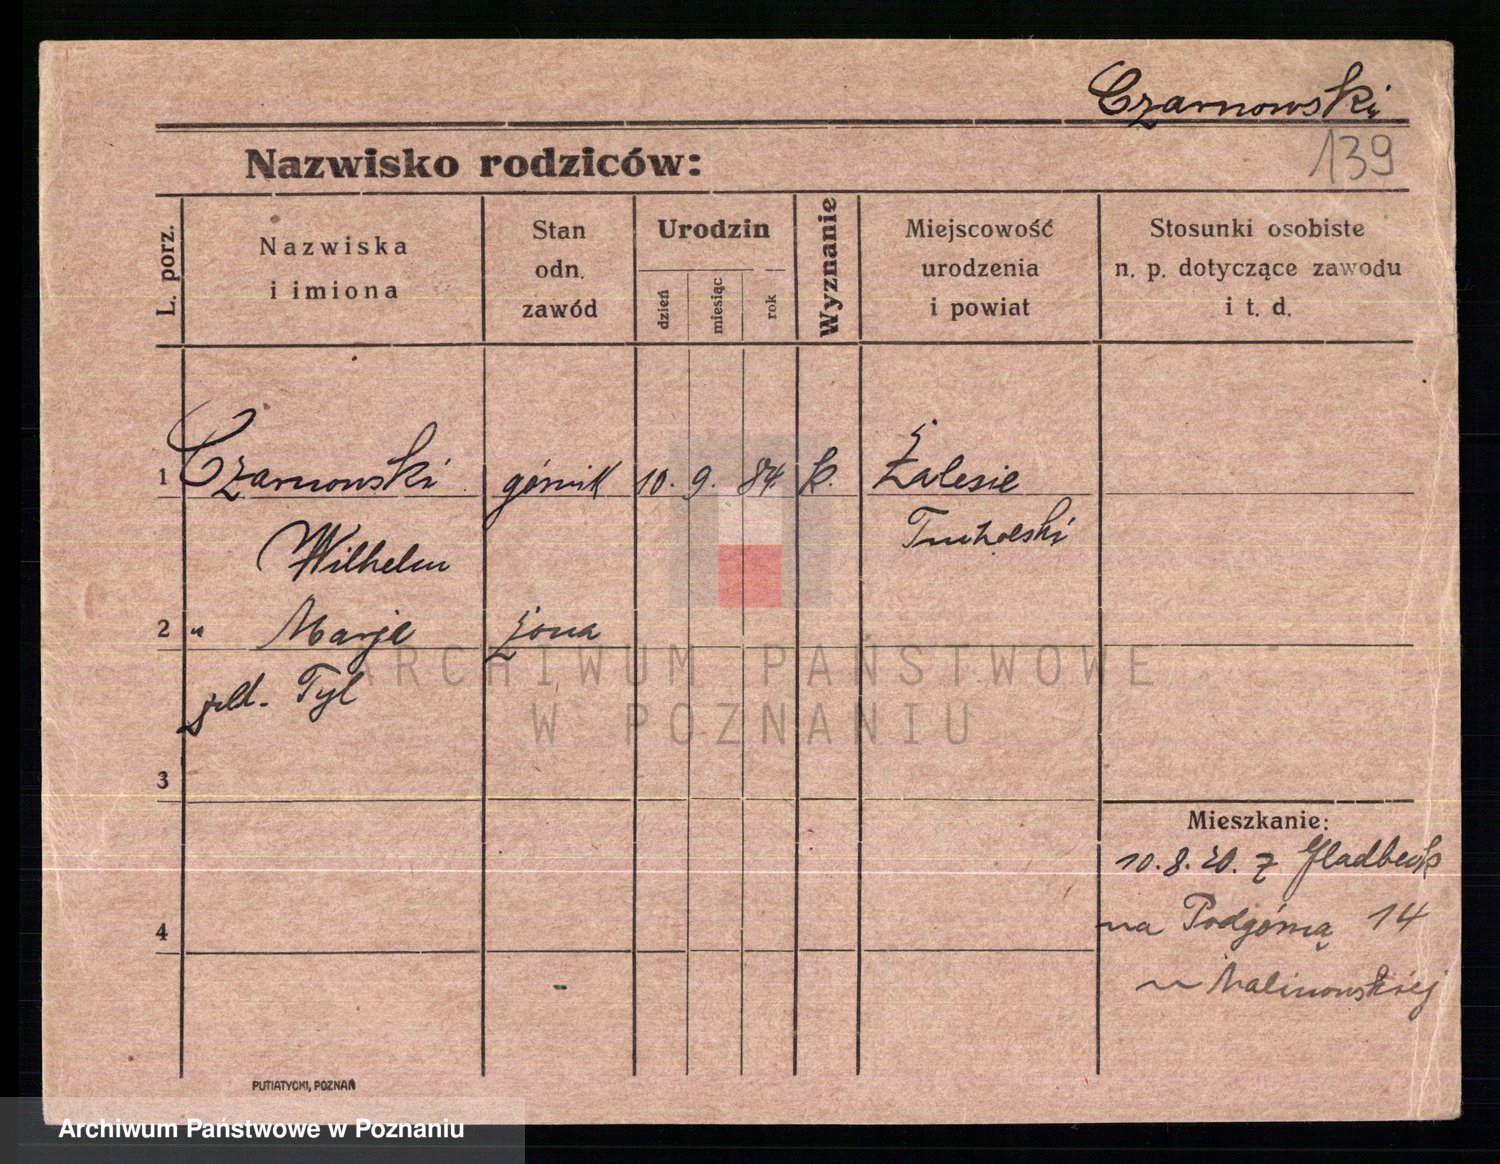 Czarnowski
139
Nazwisko rodziców:
L. porz.
Nazwiska
i imiona
Stan
odn.
zawód
Urodzin
dzień
miesiąc
rok
Wyznanie
Miejscowość
urodzenia
i powiat
Stosunki osobiste
n. p. dotyczące zawodu
i t. d.
1 Czarnowski górnik 10. 9. 84. k. Zalesie
Wilhelm Tucholski
2 " Marje żona
Tyl
3
4
Mieszkanie:
10.8.20. z Gladbeck
na Podgórną 14
Malinowskiej
PUTIATYCKI, POZNAŃ
ARCHIWUM PAŃSTWOWE
W POZNANIU
Archiwum Państwowe w Poznaniu